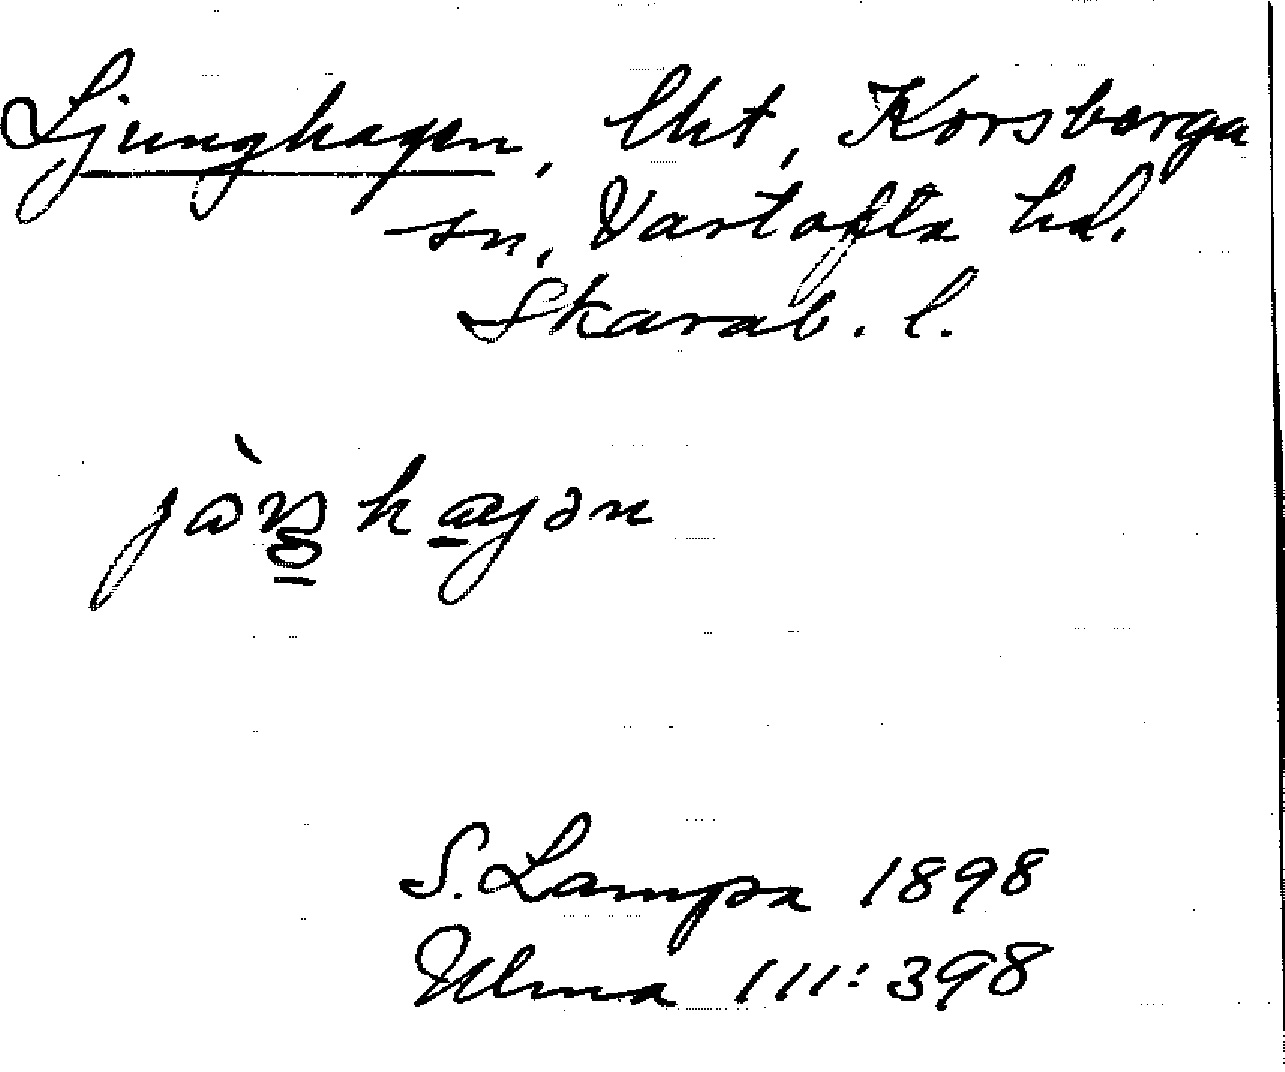 Ljunghagen, lht, Korsberga
sn, Vartofta hd.
Skarab. l.
S. Lampa 1898
Ulma 111:398